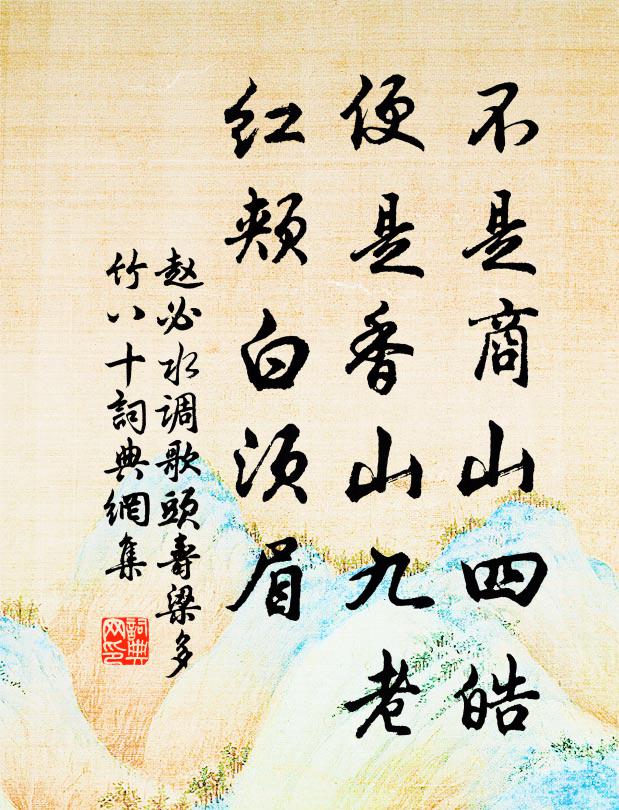 不是商山四皓
便是香山九老
红颊白须眉
赵必水调歌頭寿梁多
竹八十詞典網集
詞典网印